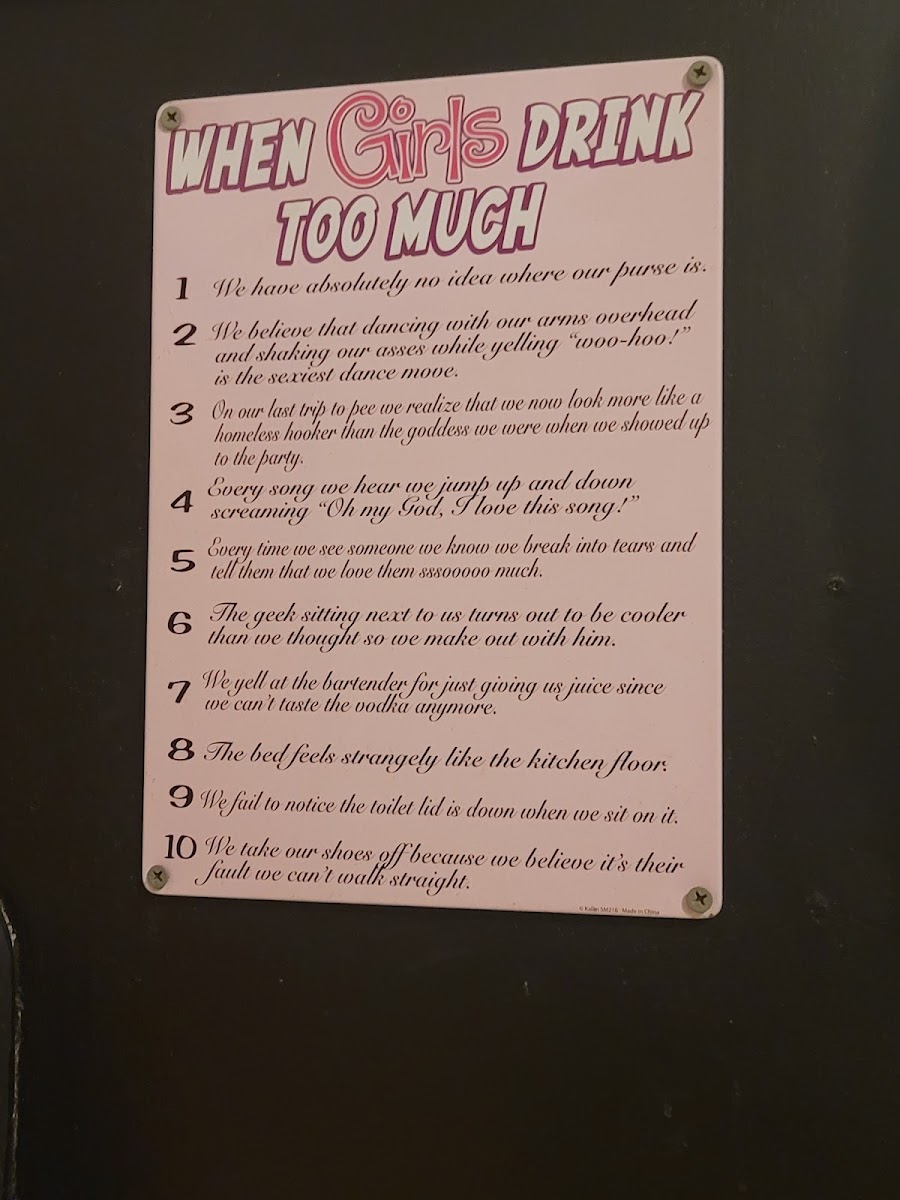 WHEN Girls DRINK
TOO MUCH
1 We have absolutely no idea where our purse is.
2 We believe that dancing with our arms overhead
and shaking our asses while yelling “woo-hoo!”
is the sexiest dance move.
3 On our last trip to pee we realize that we now look more like a
homeless hooker than the goddess we were when we showed up
to the party.
4 Every song we hear we jump up and down
screaming “Oh my God, I love this song!”
5 Every time we see someone we know we break into tears and
tell them that we love them sssooooo much.
6 The geek sitting next to us turns out to be cooler
than we thought so we make out with him.
7 We yell at the bartender for just giving us juice since
we can't taste the vodka anymore.
8 The bed feels strangely like the kitchen floor.
9 We fail to notice the toilet lid is down when we sit on it.
10 We take our shoes off because we believe it's their
fault we can't walk straight.
Made in China